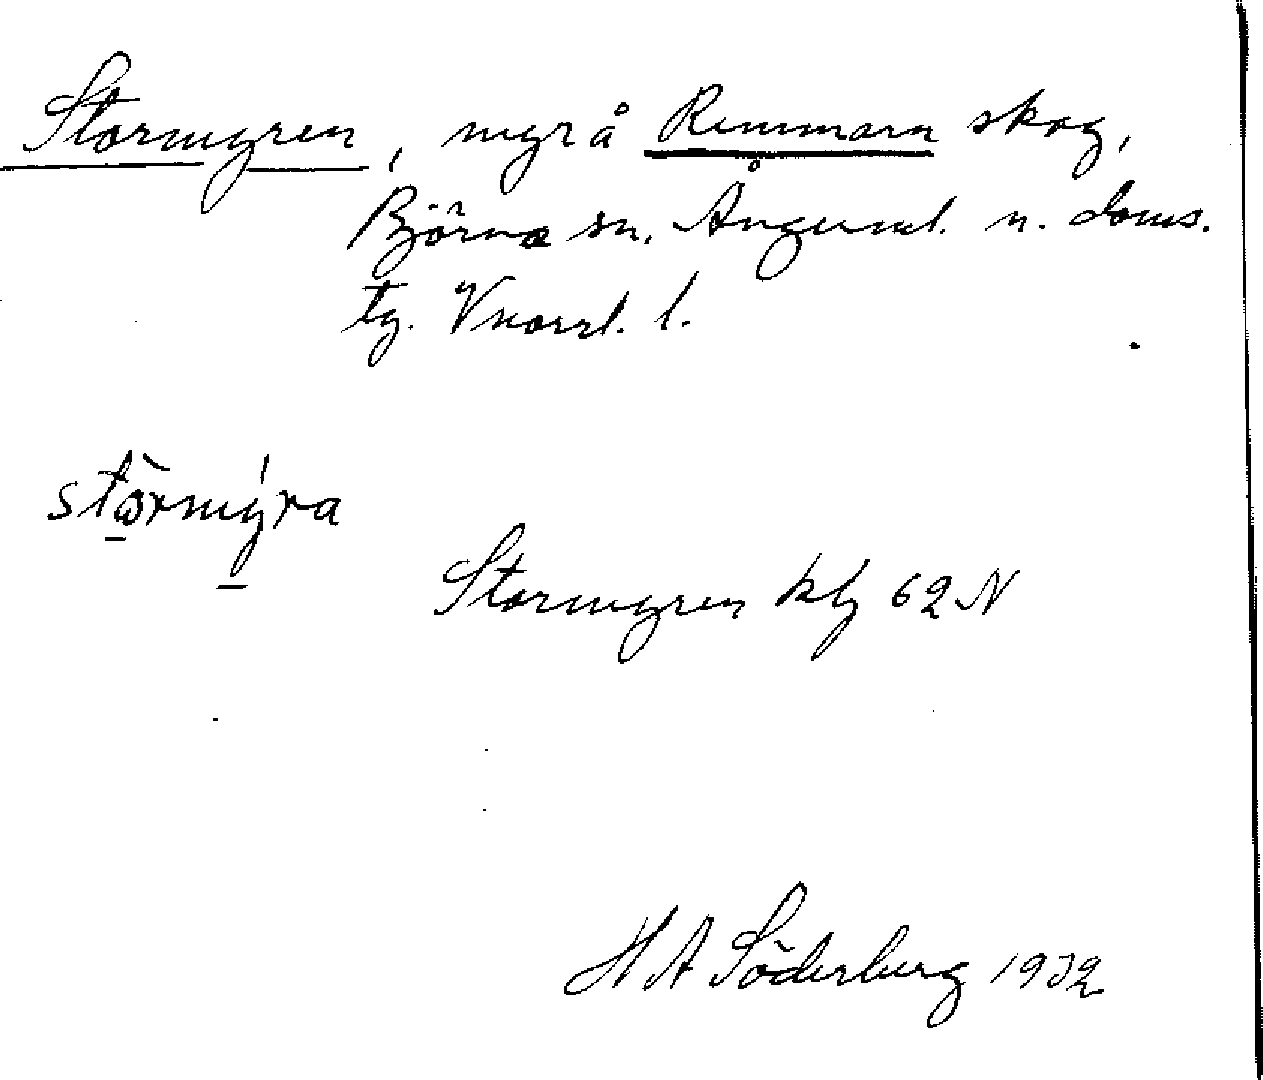 Stormyren, myr å Remmarn skog,
Björna sn. Ångerml. n. doms.
tg. Vnorrl. l.
stormyra
Stormyren kbg 62 N
H A Söderberg 1932